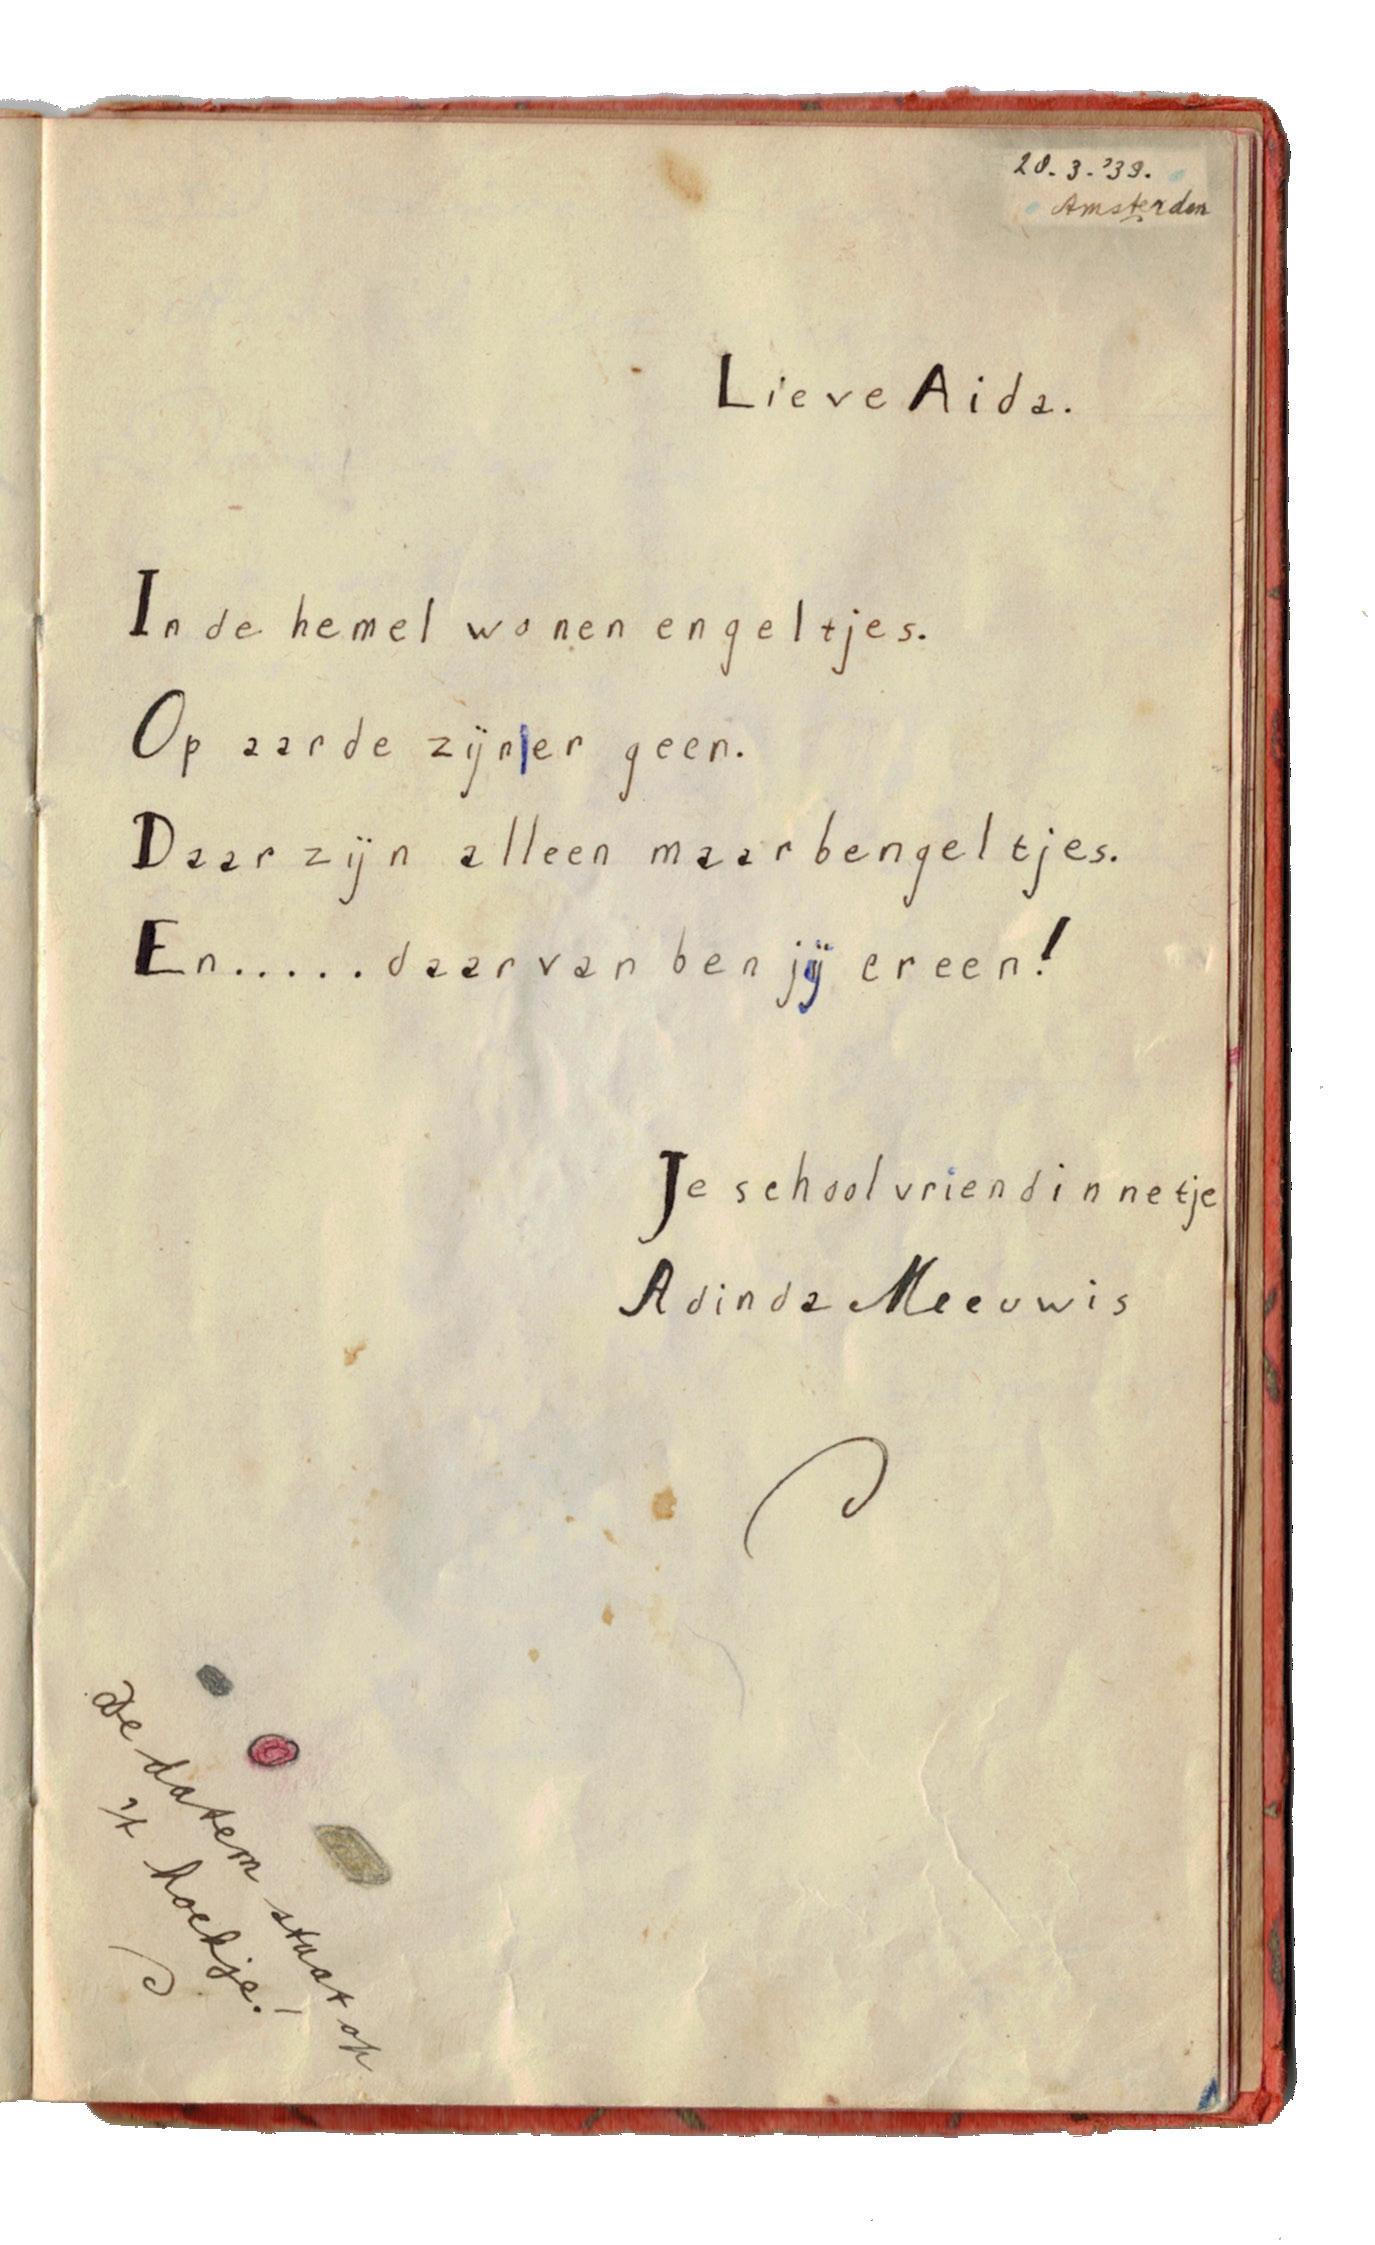 28.3.'39.
Amsterdam
Lieve Aida.
In de hemel wonen engeltjes.
Op aarde zijn|er geen.
Daar zijn alleen maar bengeltjes.
En.....daarvan ben jij er een!
Je schoolvriendinnetje
Adinda Meeuwis
De datem staat op
't hoekje!